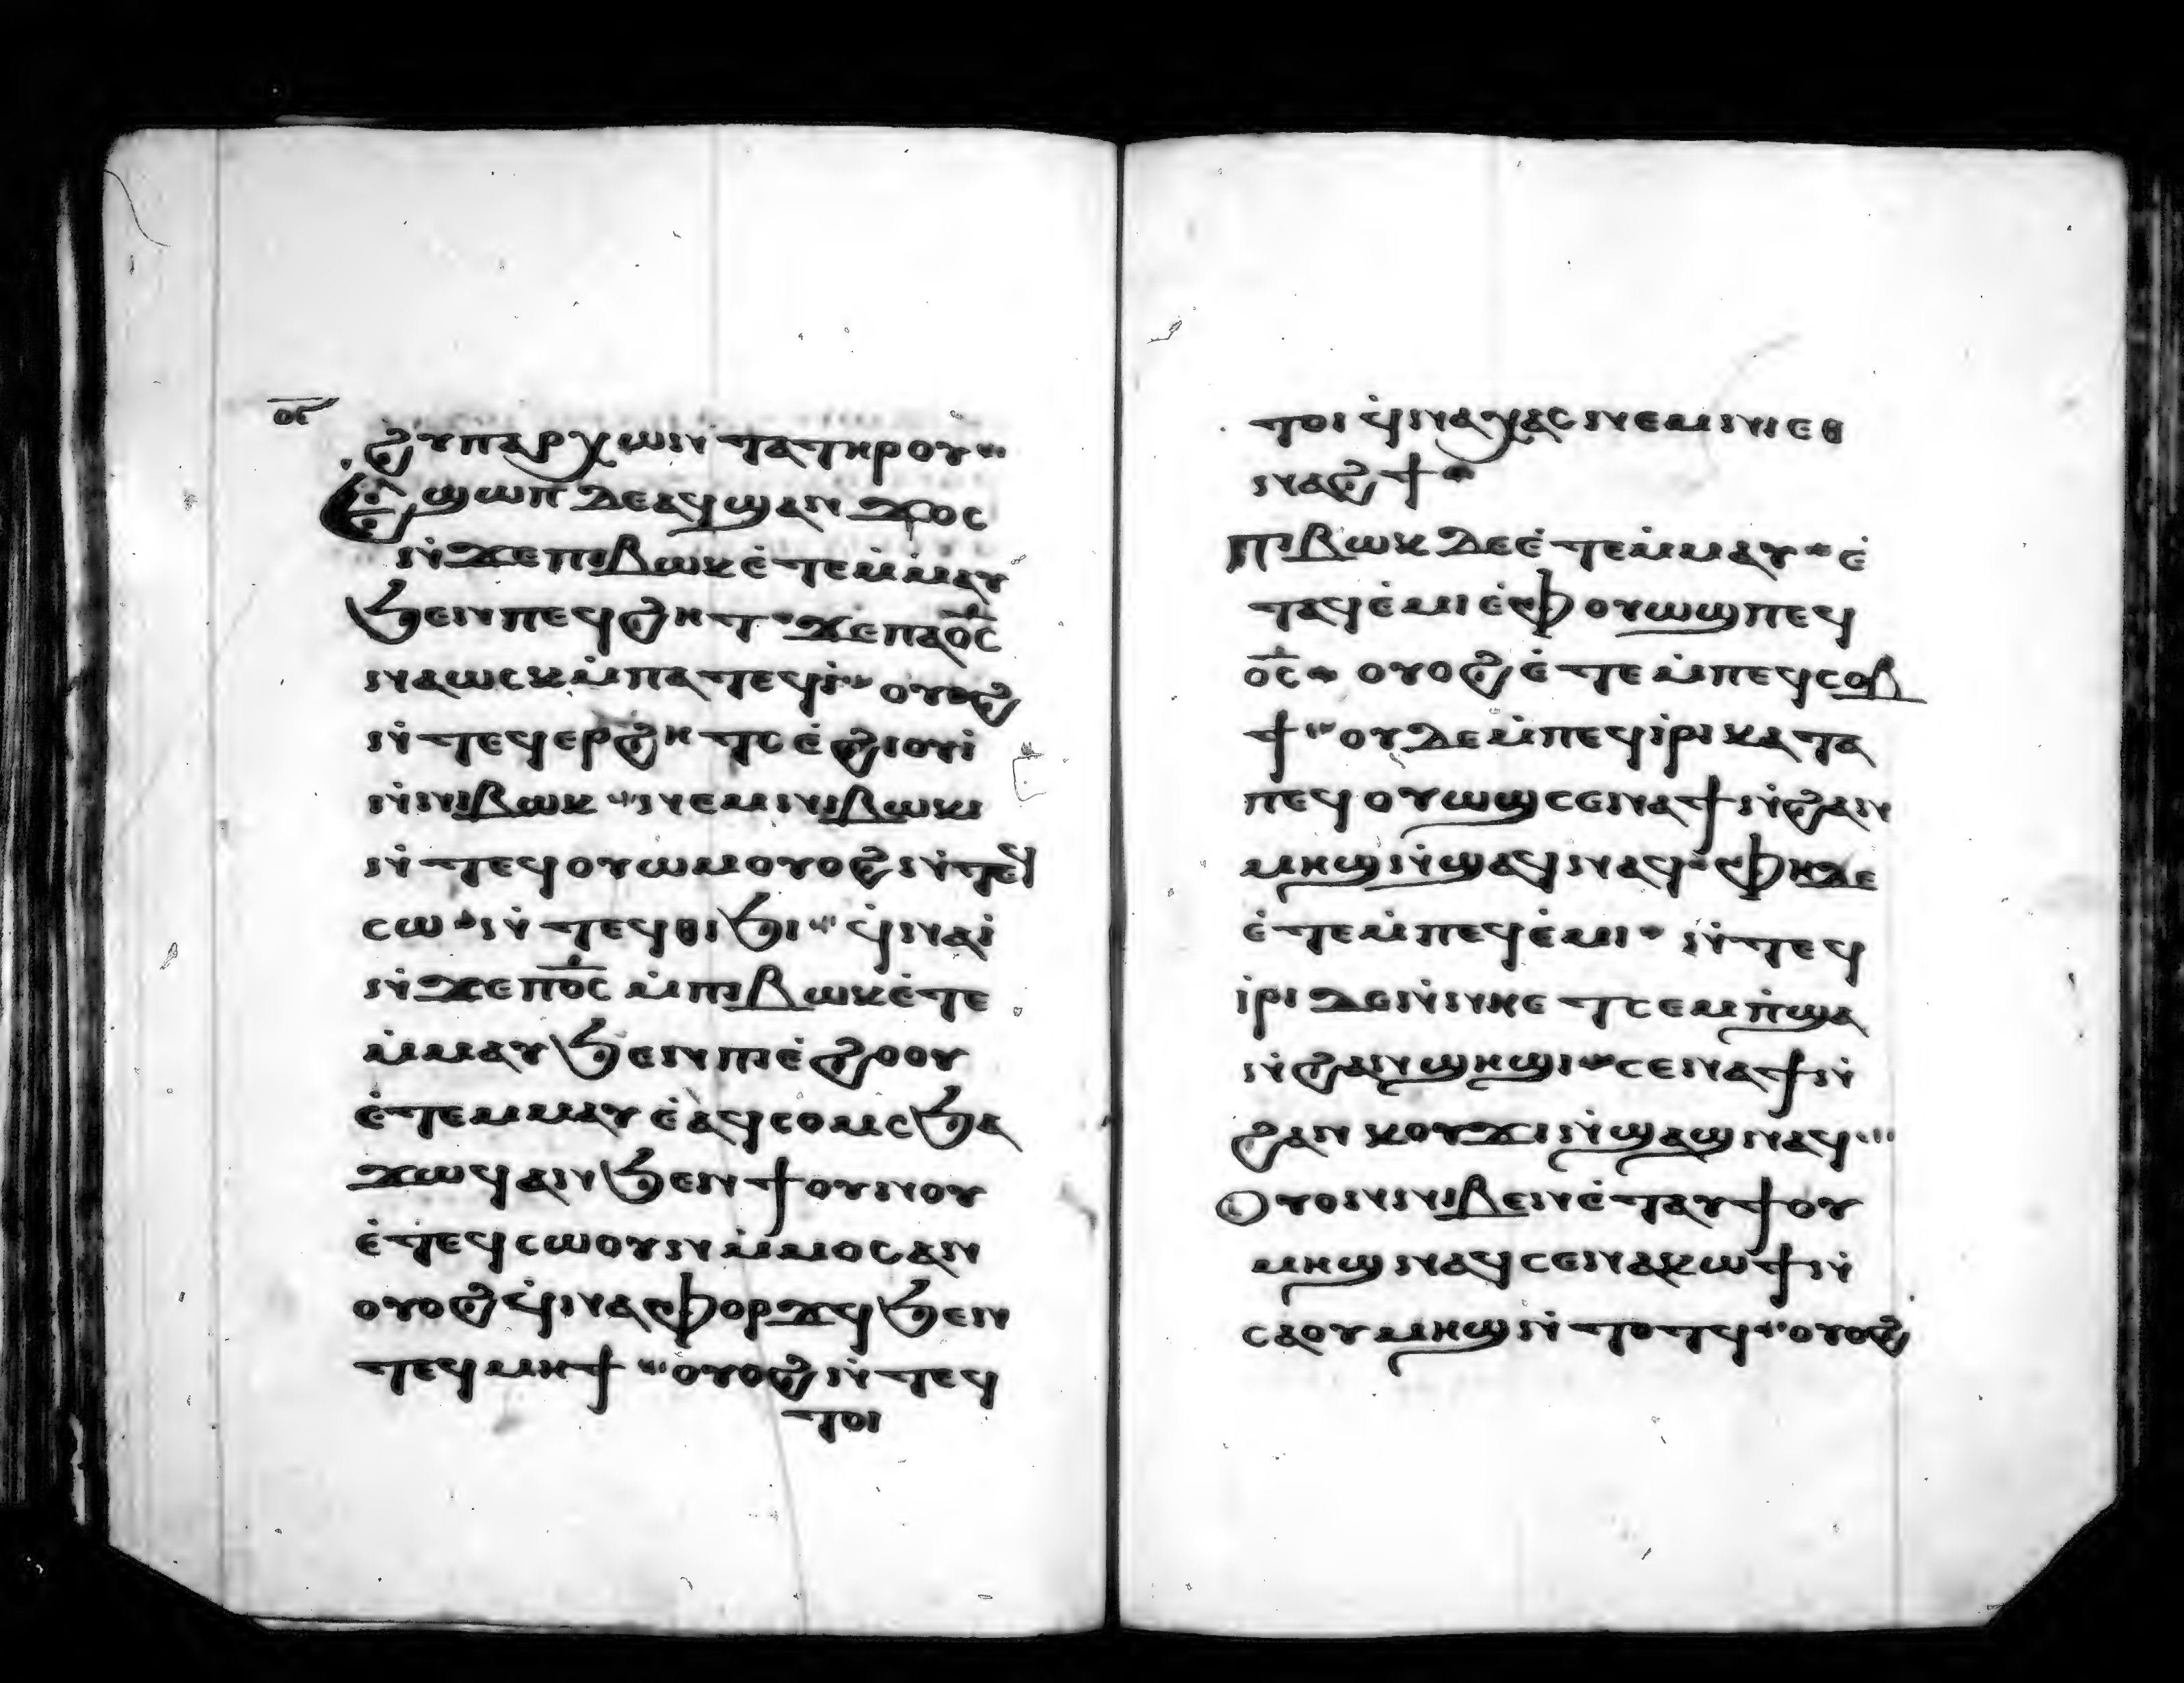 ⲟⲋ
ϩⲩⲡⲁⲣⲭⲱⲛ ⲧⲁⲧⲏⲣⲟⲩ
Ⲉϣⲱⲡ ⲇⲉⲁϥϣⲁⲛ ϫⲟⲥ
ⲛ̇ϫⲉⲡⲓⲃⲱⲕⲉ̇ⲧⲉⲙ̇ⲙⲁⲩ
ϧⲉⲛⲡⲉϥϩⲏⲧ ϫⲉⲡⲁⲟ̅ⲥ̅
ⲛⲁⲱⲥⲕⲙ̇ⲡⲁⲧⲉϥⲓ̇ ⲟⲩⲟϩ
ⲛ̇ⲧⲉϥⲉⲣϩⲏⲧⲥ ⲉ̇ϩⲓⲟⲩⲓ̇
ⲛ̇ⲛⲓⲃⲱⲕ ⲛⲉⲙⲛⲓⲃⲱⲕⲓ
ⲛ̇ⲧⲉϥⲟⲩⲱⲙⲟⲩⲟϩⲛ̇ⲧⲉϥ
ⲥⲱ ⲛ̇ⲧⲉϥⲑⲓϧⲓ ϥ̇ⲛⲁⲓ̇
ⲛ̇ϫⲉⲡⲟ̅ⲥ̅ ⲙ̇ⲡⲓⲃⲱⲕⲉ̇ⲧⲉ
ⲙ̇ⲙⲁⲩϧⲉⲛⲡⲓⲉ̇ϩⲟⲟⲩ
ⲉ̇ⲧⲉⲙⲙⲁⲩ ⲉ̇ⲁϥⲥⲟⲙⲥϧⲁ
ϫⲱϥⲁⲛϧⲉⲛϯⲟⲩⲛⲟⲩ
ⲉ̇ⲧⲉϥⲥⲱⲟⲩⲛ ⲙ̇ⲙⲟⲥⲁⲛ
ⲟⲩⲟϩϥ̇ⲛⲁⲫⲟⲣϫϥϧⲉⲛ
ⲧⲉϥⲙⲏϯ ⲟⲩⲟϩⲛ̇ⲧⲉϥ
ⲧⲟⲓ
ⲧⲟⲓ ϥ̇ⲛⲁⲭⲁⲥⲛⲉⲙⲛⲓⲉⲑ
ⲛⲁϩϯ
ⲡⲓⲃⲱⲕ ⲇⲉⲉ̇ⲧⲉⲙ̇ⲙⲁⲩ ⲉ̇
ⲧⲁϥⲉ̇ⲙⲓⲉ̇ⲫⲟⲩⲱϣⲡⲉϥ
ⲟ̅ⲥ̅ ⲟⲩⲟϩⲉ̇ⲧⲉⲙ̇ⲡⲉϥⲥⲟⲃ
ϯ ⲟⲩⲇⲉⲙ̇ⲡⲉϥⲓ̇ⲣⲓ ⲕⲁⲧⲁ
ⲡⲉϥⲟⲩⲱϣⲥⲉⲛⲁϯⲛ̇ϩⲁⲛ
ⲙⲏϣⲛ̇ϣⲁϥⲛⲁϥ ⲫⲏⲇⲉ
ⲉ̇ⲧⲉⲙ̇ⲡⲉϥⲉ̇ⲙⲓ ⲛ̇ⲧⲉϥ
ⲓ̇ⲣⲓ ⲇⲉⲛ̇ⲛⲏⲉⲧⲥⲉⲙⲡ̇ϣⲁ
ⲛ̇ϩⲁⲛϣⲏϣⲓ ⲥⲉⲛⲁϯⲛ̇
ϩⲁⲛ ⲕⲟⲩϫⲓⲛ̇ϣⲁϣⲛⲁϥ
Ⲟⲩⲟⲛⲛⲓⲃⲉⲛⲉ̇ⲧⲁⲩϯⲟⲩ
ⲙⲏϣⲛⲁϥⲥⲉⲛⲁⲕⲱϯⲛ̇
ⲥⲁⲟⲩⲙⲏϣⲛ̇ⲧⲟⲧϥ ⲟⲩⲟϩ